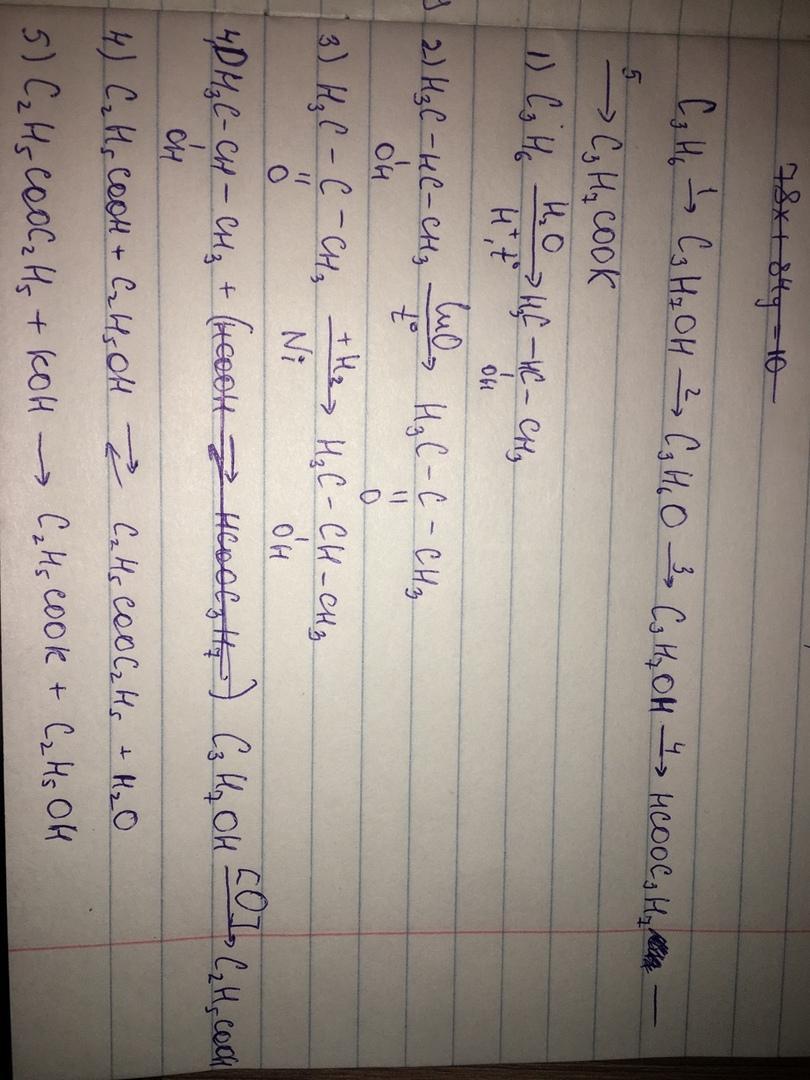 78x + 84y = 10
C₃H₆ —1→ C₃H₇OH —2→ C₃H₆O —3→ C₃H₇OH —4→ HCOOC₃H₇ —
5→ C₃H₇COOK
1) C₃H₆ —H₂O / H⁺, t°→ H₃C – HC(OH) – CH₃
2) H₃C – HC(OH) – CH₃ —CuO / t°→ H₃C – C(=O) – CH₃
3) H₃C – C(=O) – CH₃ —+H₂ / Ni→ H₃C – CH(OH) – CH₃
4) H₃C – CH(OH) – CH₃ + (HCOOH ⇄ HCOOC₃H₇) C₃H₇OH —[O]→ C₂H₅COOH
4) C₂H₅COOH + C₂H₅OH ⇄ C₂H₅COOC₂H₅ + H₂O
5) C₂H₅COOC₂H₅ + KOH → C₂H₅COOK + C₂H₅OH